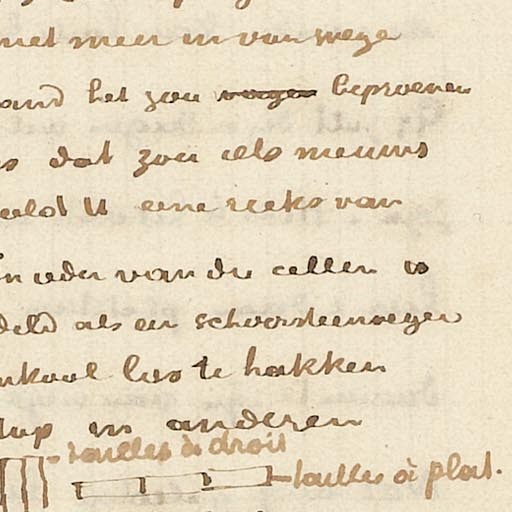 niet meer in van wege
and het zou wagen beproeven
s dat zou iels nieuws
eeld U eene reeks van
n ieder van die cellen is
deld als een schoorsteenveger
nkool los te hakken
in anderen
tailles à droit
tailles à plat.